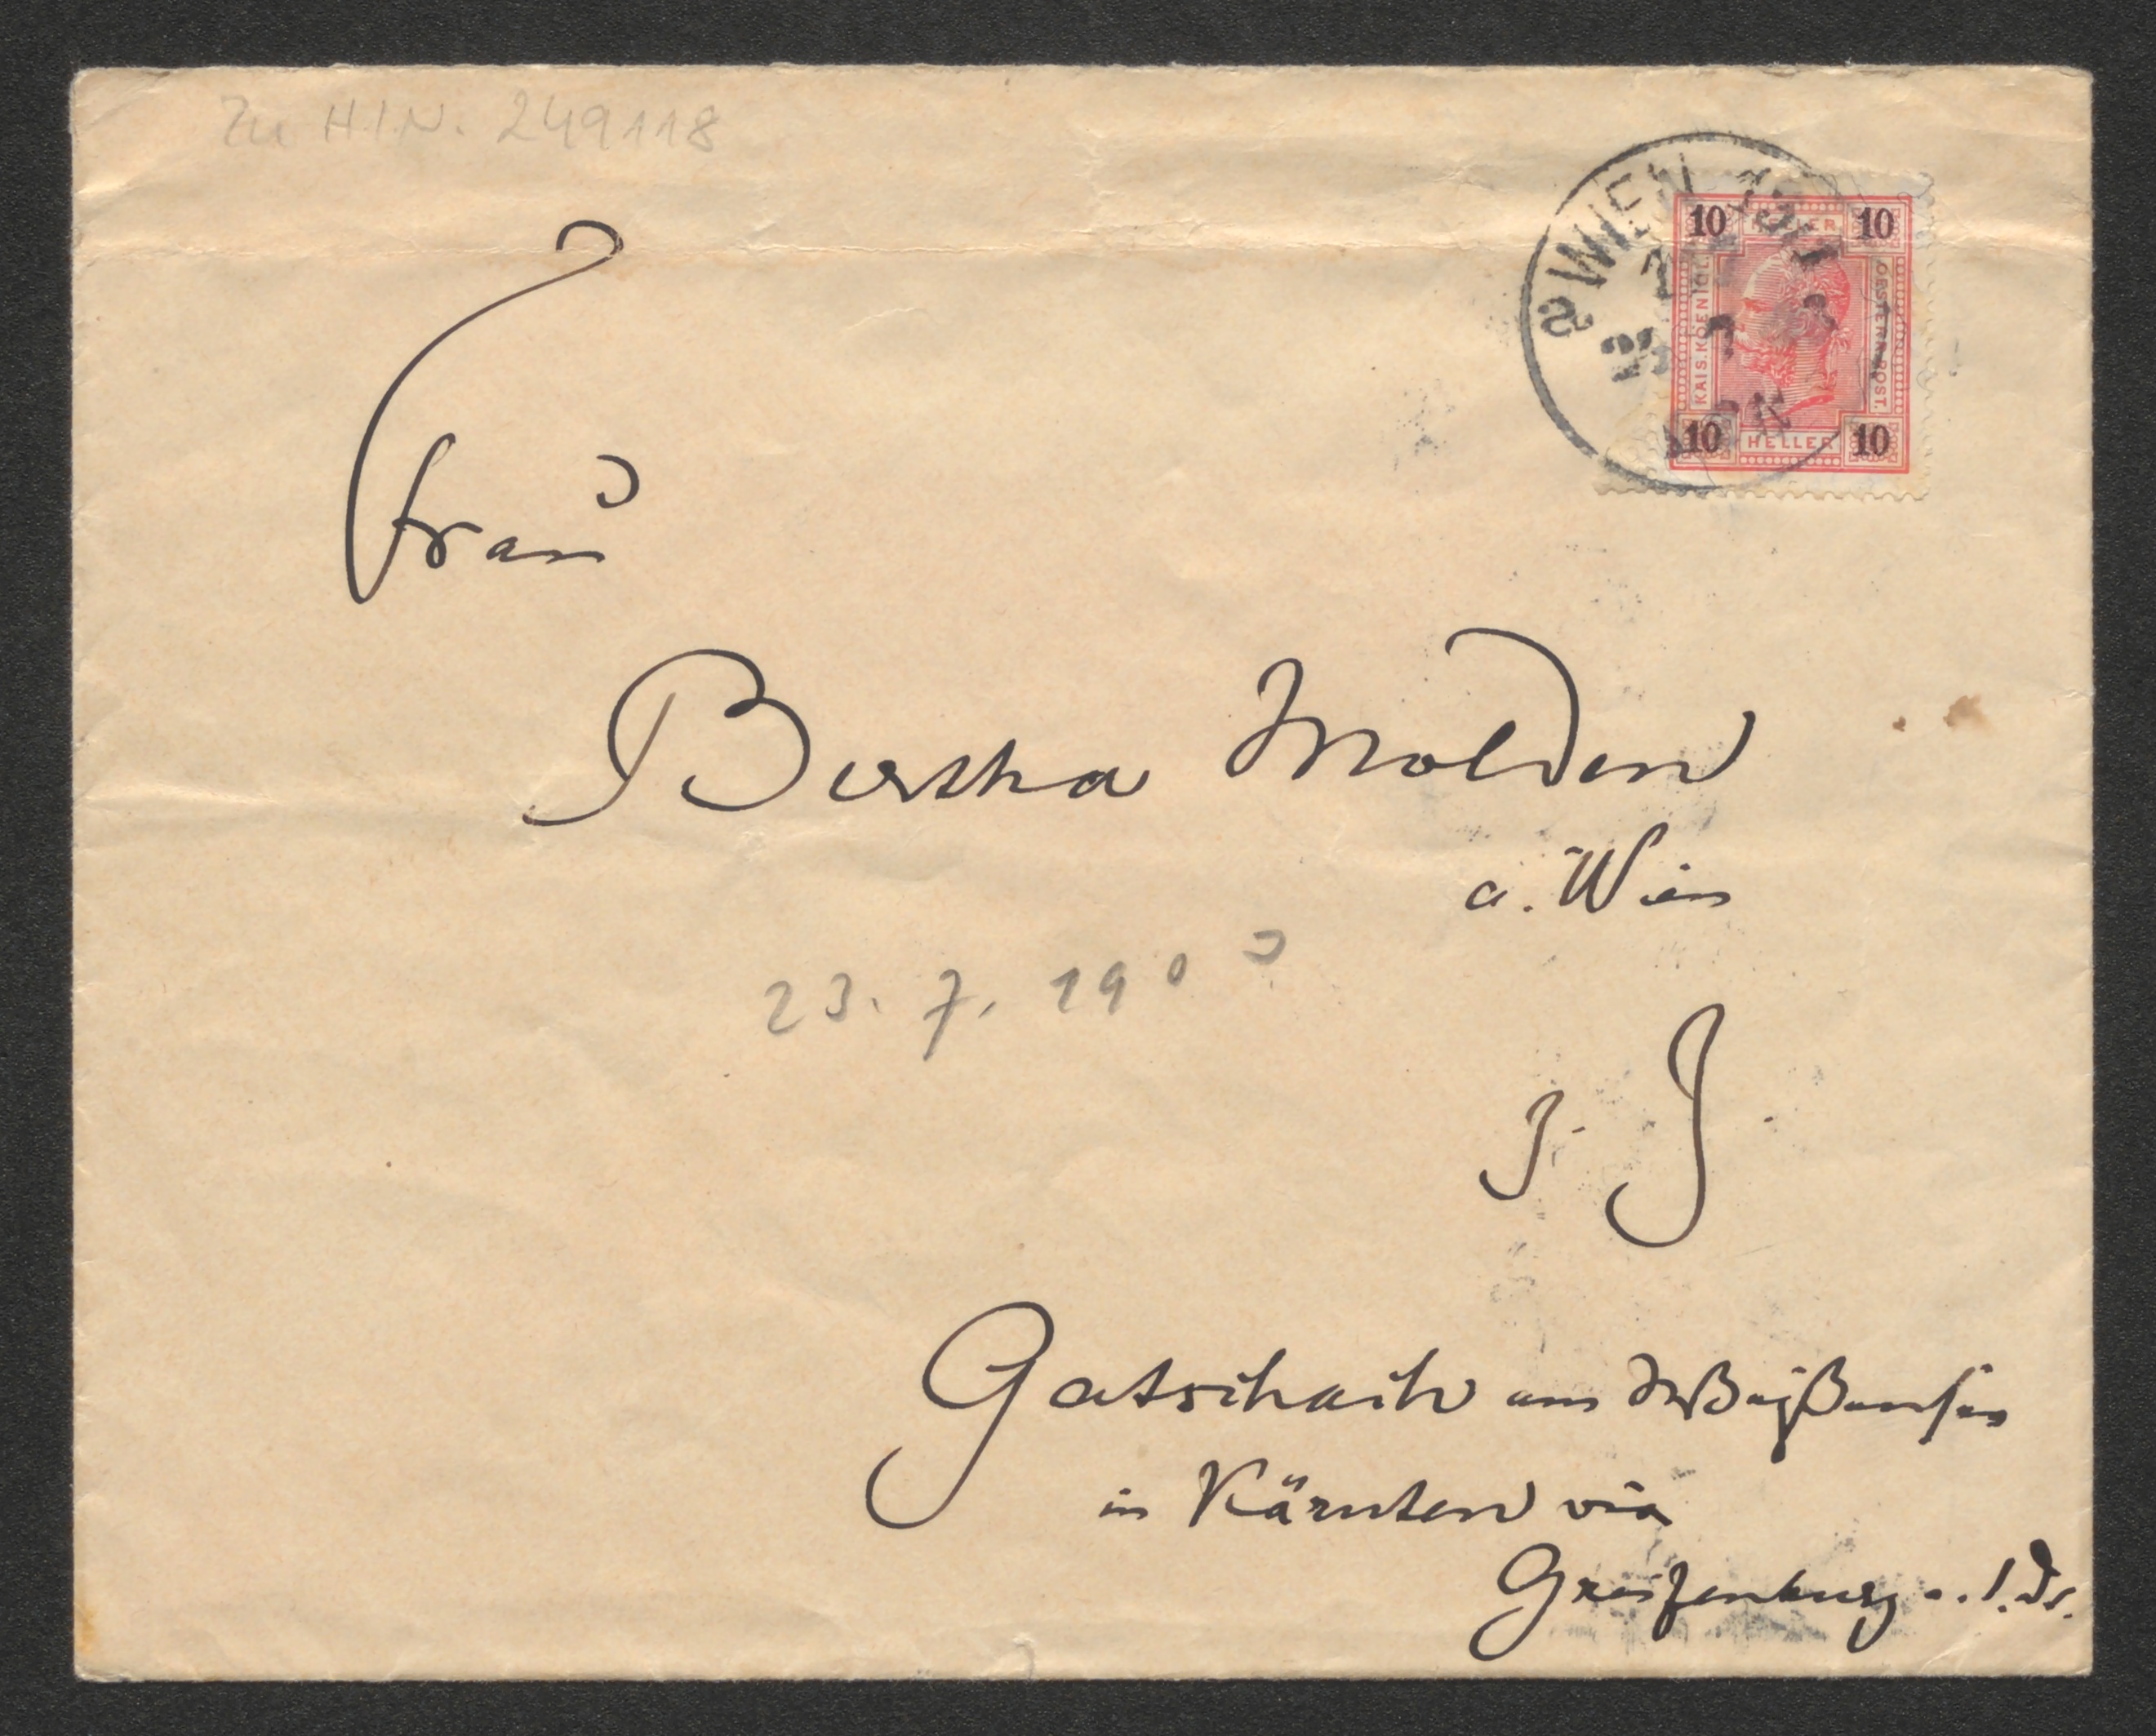 Zu H.I.N. 249118
WIEN
10 10
KAIS. KOENIGL. OESTERR. POST.
10 HELLER 10
Frau
Bertha Molden
a. Wien
23. 7. 1903
z. Z.
Gatschach am Weißensee
in Kärnten via
Greifenburg a. d. Dr.